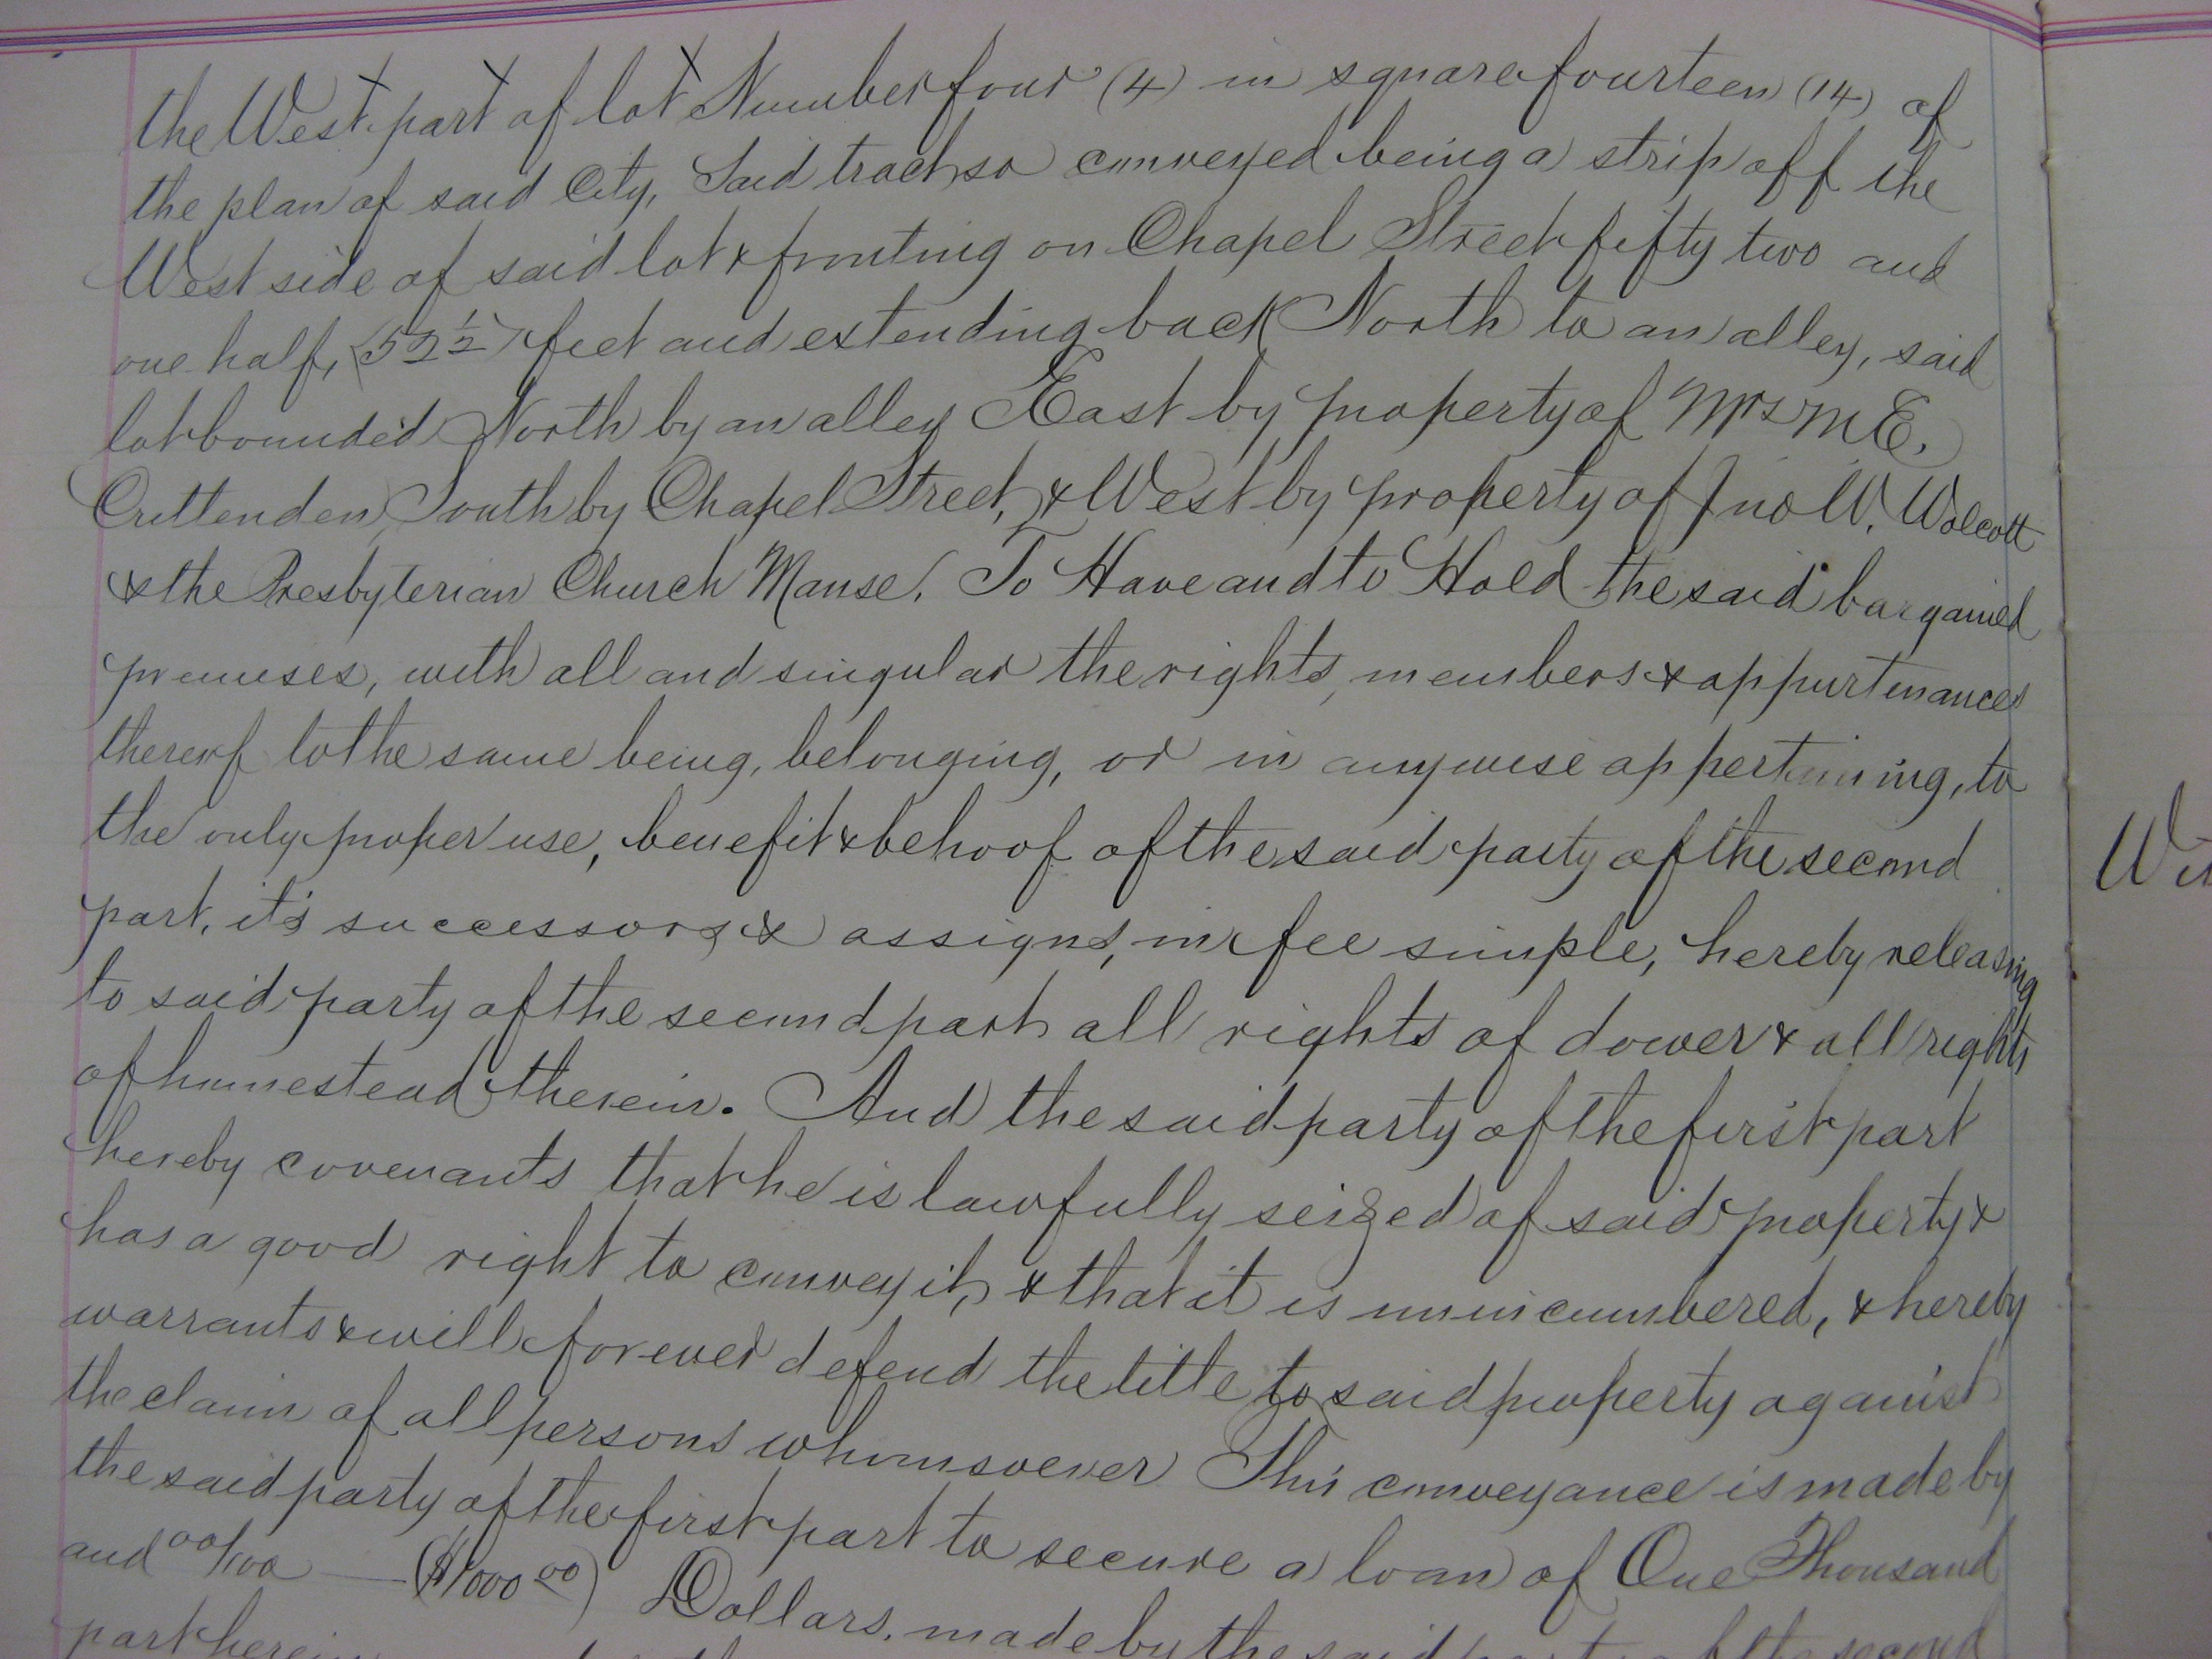 the West part of lot Number four (4) in square fourteen (14) of
the plan of said City, Said tract so conveyed being a strip off the
West side of said lot & fronting on Chapel Street fifty two and
one half, (52 1/2) feet and extending back North to an alley, said
lot bounded North by an alley East by property of Mrs M E.
Crittenden, South by Chapel Street, & West by property of Jno W. Wolcott
& the Presbyterian Church Manse. To Have and to Hold the said bargained
premises, with all and singular the rights, members & appurtinances
thereof to the same being, belonging, or in anywise appertaining, to
the only proper use, benefit & behoof of the said party of the second
part, it's successors & assigns, in fee simple, hereby releasing
to said party of the second part all rights of dower & all rights
of homestead therein. And the said party of the first part
hereby covenants that he is lawfully seized of said property &
has a good right to convey it, & that it is unincumbered, & hereby
warrants & will forever defend the title to said property against
the claim of all persons whomsoever This conveyance is made by
the said party of the first part to secure a loan of One Thousand
and 00/100 — ($1000 00) Dollars, made by the said party of the second
part herein
Wit